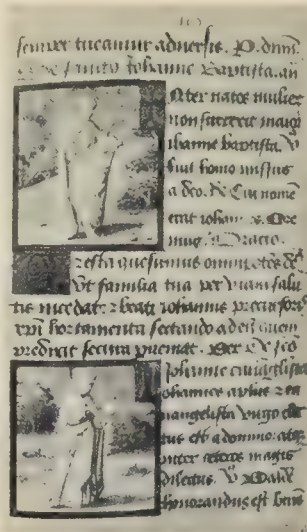 semper tueamur adversis. P. dnm.
De sancto Iohanne Baptista. an
Inter natos mulier
non surrexit maior
iohanne baptista. V
fuit homo missus
a deo. R Cui nomen
erat iohan es. Ore
mus. Oracio.
Presta quesumus omnipotes de
Ut familia tua per viam salu
tis incedat: z beati iohannis precursoris
hortamenta sectando ad eu quem
predixit secura pveniat. Per De sco
Iohanne evangelista
Iohannes aplus z e
vangelista virgo elec
tus est a domino: atq
inter ceteros magis
dilectus. V Valde
honorandus est beus